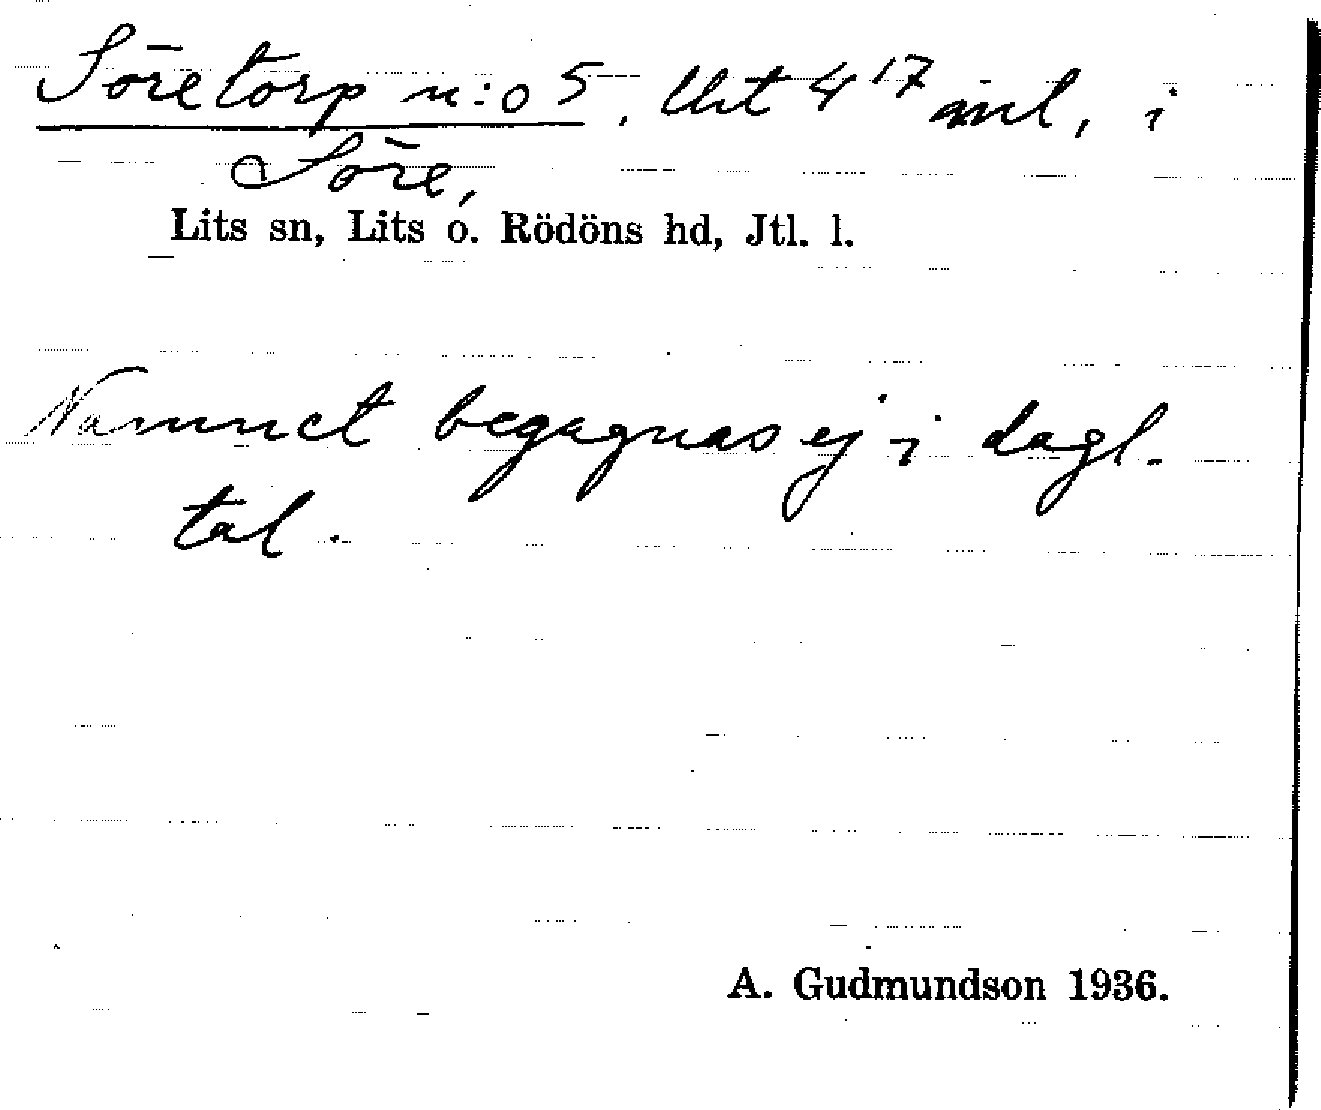 Söretorp n:o 5, Utlt 4 17 ml, i
Söre,
Lits sn, Lits o. Rödöns hd, Jtl. l.
Namnet begagnas ej i dagl.
tal.
A. Gudmundson 1936.